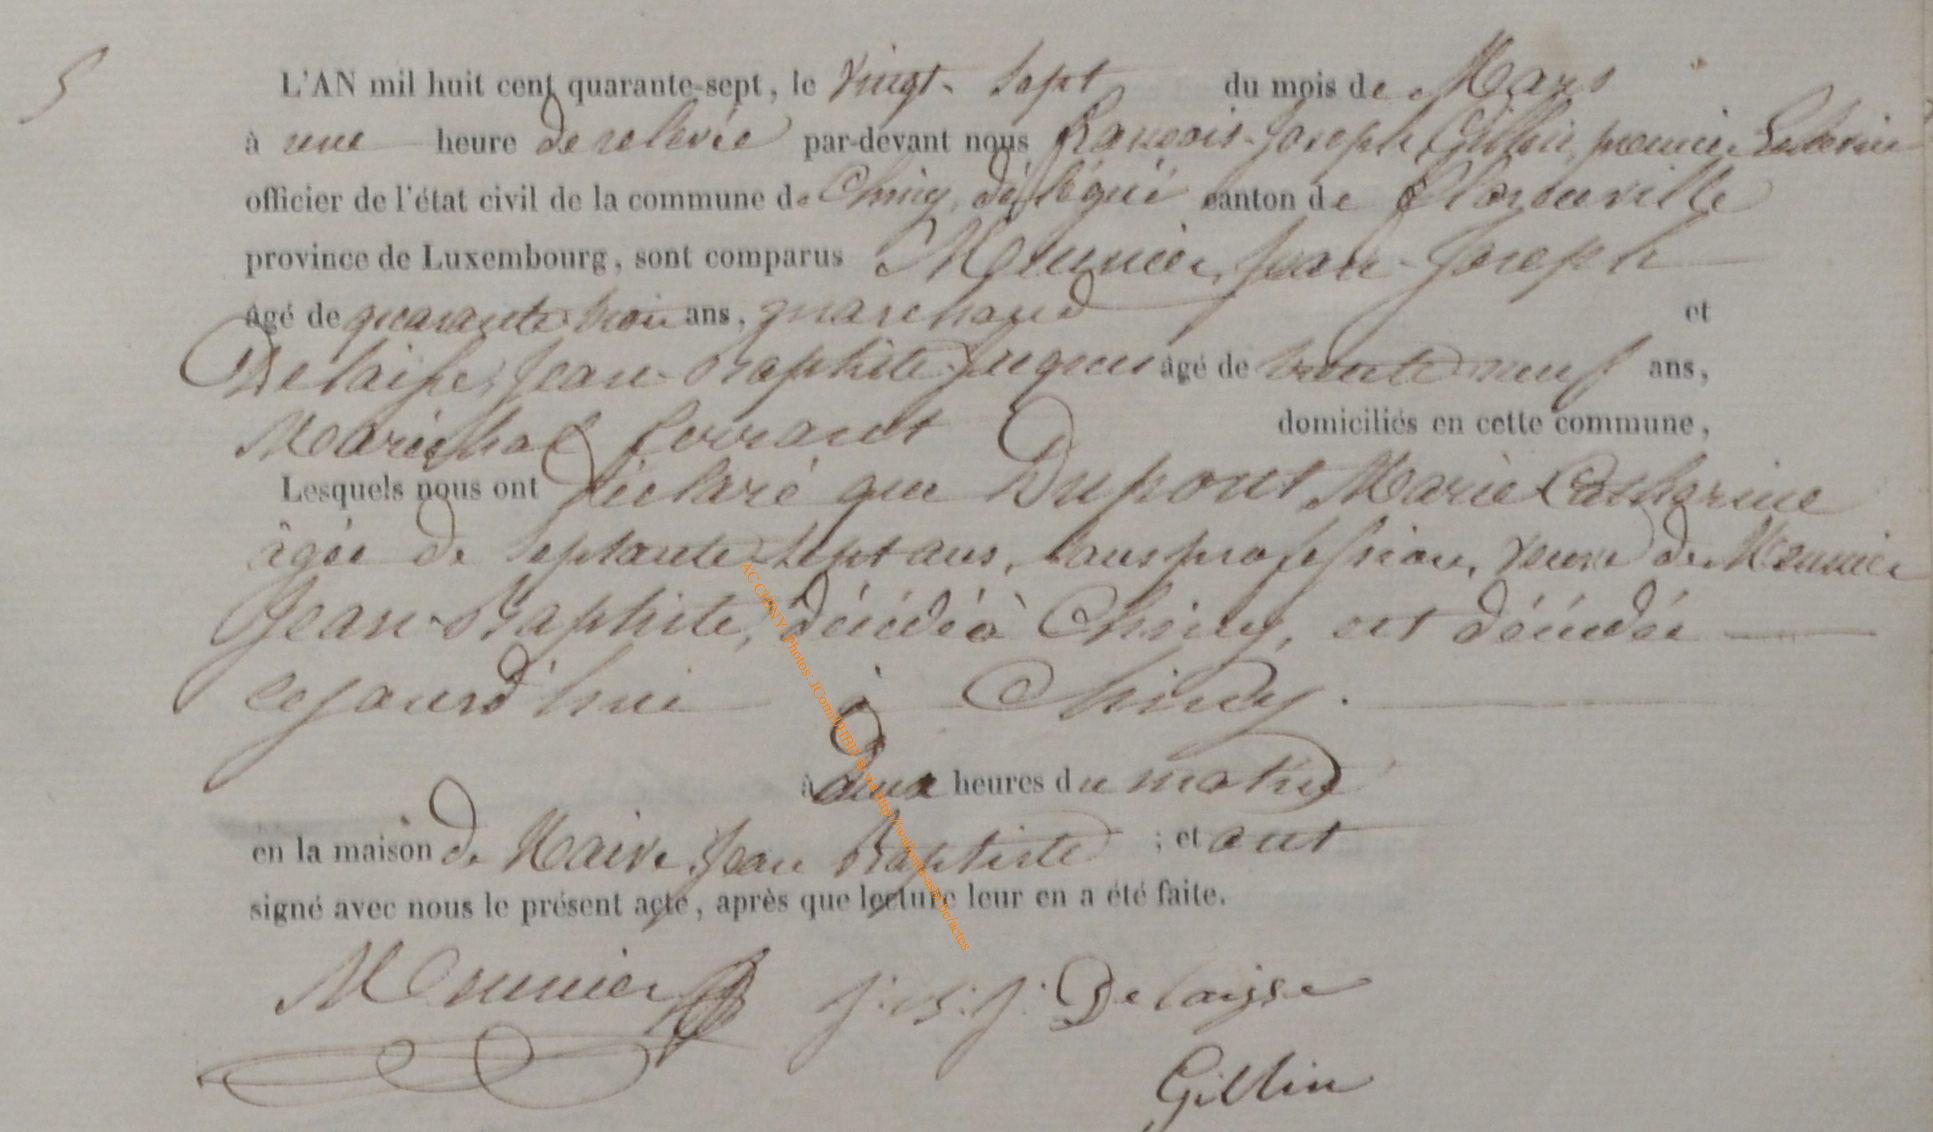 5
L'AN mil huit cent quarante-sept, le vingt-sept du mois de Mars
à une heure de relevée par-devant nous François-Joseph Gillin, premier Echevin
officier de l'état civil de la commune de Chiny, délégué canton de Florenville
province de Luxembourg, sont comparus Meunier, Jean-Joseph
âgé de quarante trois ans, marchand et
Delaisse, Jean-Baptiste-Jacques âgé de trente neuf ans,
Maréchal ferrant domiciliés en cette commune,
Lesquels nous ont déclaré que Dupont Marie Catherine
âgée de septante-sept ans, sans profession, veuve de Meunier
Jean-Baptiste, décédé à Chiny, est décédée
cejourd'hui à Chiny.
à deux heures du matin
en la maison de Jean Baptiste ; et ont
signé avec nous le présent acte, après que lecture leur en a été faite.
Meunier J. B. J. Delaisse
Gillin
AC CHINY - Photos